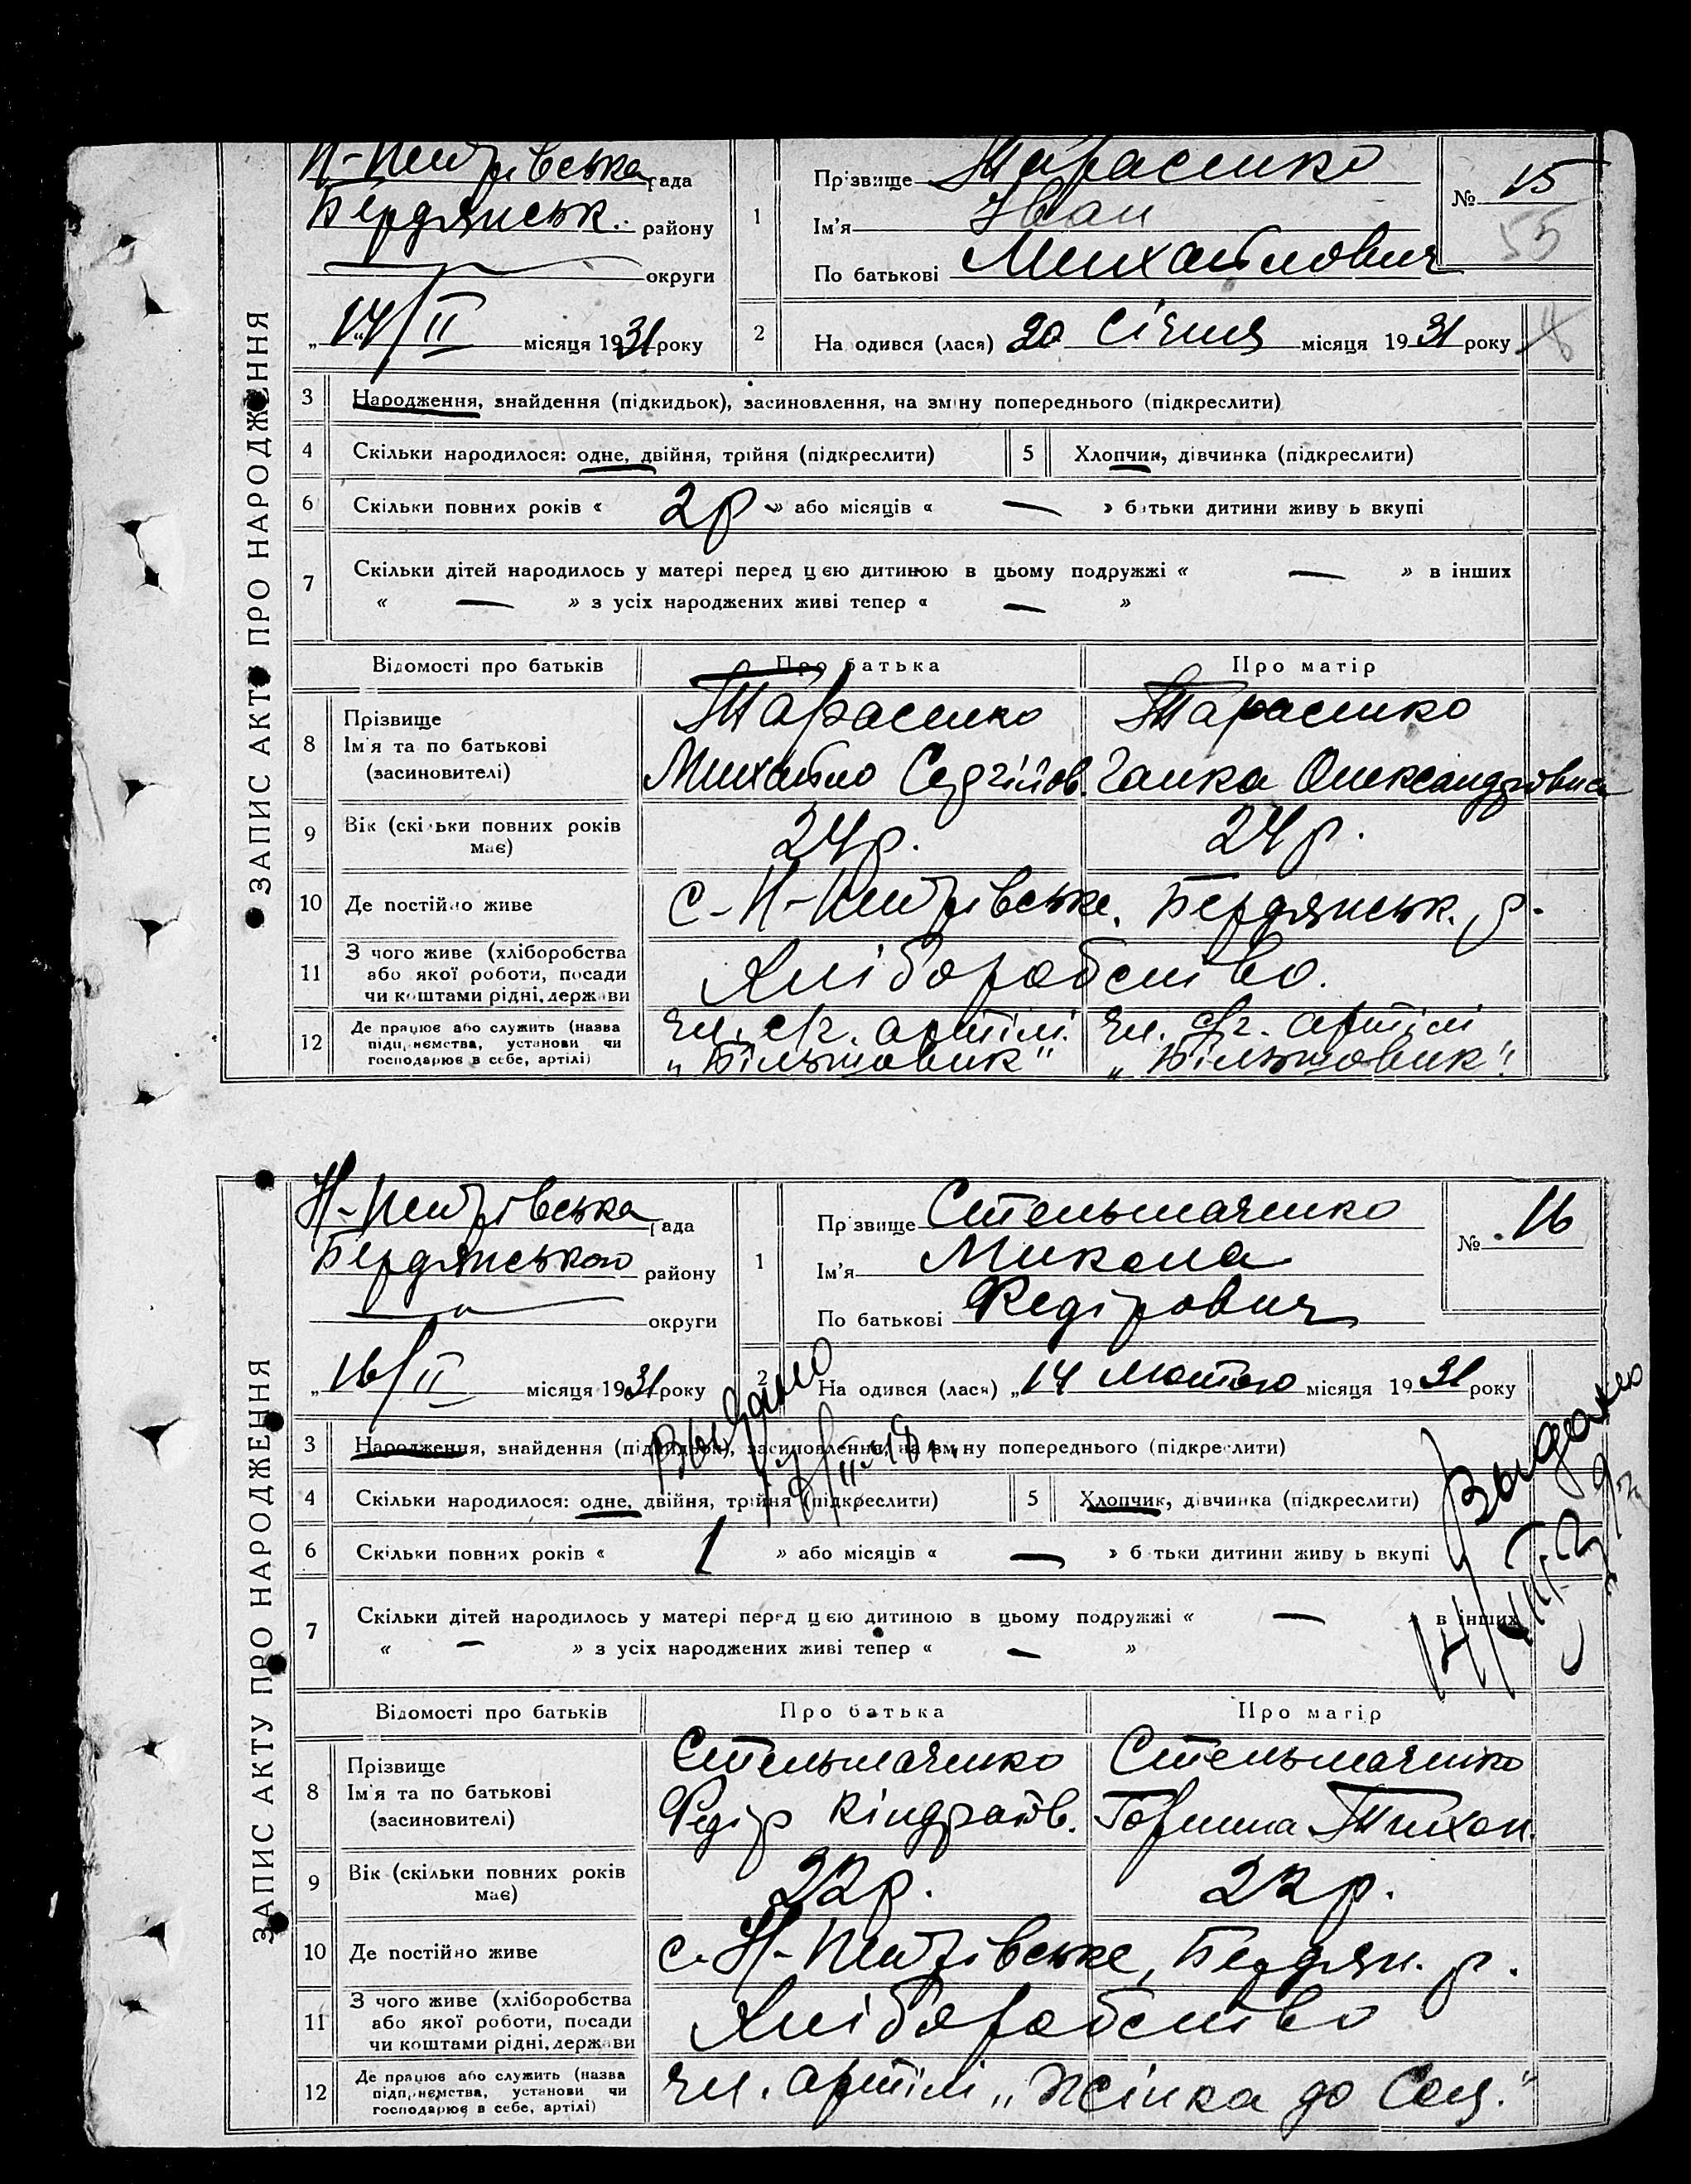 ЗАПИС АКТУ ПРО НАРОДЖЕННЯ
Н-Петрівська рада
Бердянськ. району
округи
„14/II місяця 1931 року
1
Прізвище Тарасенко
Ім'я Іван
По батькові Михайлович
№ 15
55
2
На одився (лася) 20 Січня місяця 1931 року
3 Народження, знайдення (підкидьок), засиновлення, на зміну попереднього (підкреслити)
4 Скільки народилося: одне, двійня, трійня (підкреслити)
5 Хлопчик, дівчинка (підкреслити)
6 Скільки повних років « 2р » або місяців « — » батьки дитини живу ь вкупі
7 Скільки дітей народилось у матері перед цією дитиною в цьому подружжі « — » в інших
« — » з усіх народжених живі тепер « — »
Відомості про батьків Про батька Про матір
8
Прізвище Тарасенко Тарасенко
Ім'я та по батькові
(засиновителі) Михайло Сергійов. Ганка Олександровна
9 Вік (скільки повних років має) 24р. 24р.
10 Де постійно живе с-Н-Петрівське, Бердянськ. р.
11 З чого живе (хліборобства
або якої роботи, посади
чи коштами рідні, держави Хліборобство.
12 Де працює або служить (назва
підприємства, установи чи
господарює в себе, артілі)
чл. с/г. артілі чл. с/г. артілі
„Більшовик" „Більшовик"
ЗАПИС АКТУ ПРО НАРОДЖЕННЯ
Н-Петрівська рада
Бердянського району
округи
„16/II місяця 1931 року
1
Прізвище Стельмаченко
Ім'я Микола
По батькові Федірович
№ 16
2
На одився (лася) „14 лютого місяця 1931 року
Выдано
Выдано
3 Народження, знайдення (підкидьок), засиновлення, на зміну попереднього (підкреслити)
4 Скільки народилося: одне, двійня, трійня (підкреслити)
5 Хлопчик, дівчинка (підкреслити)
6 Скільки повних років « 1 » або місяців « — » б тьки дитини живу ь вкупі
7 Скільки дітей народилось у матері перед цією дитиною в цьому подружжі « — » в інших
« — » з усіх народжених живі тепер « — »
Відомості про батьків Про батька Про матір
8
Прізвище Стельмаченко Стельмаченко
Ім'я та по батькові
(засиновителі) Федір Кіндратів. Горпина Тихон.
9 Вік (скільки повних років має) 22р. 22р.
10 Де постійно живе с. Н-Петрівське, Бердян. р.
11 З чого живе (хліборобства
або якої роботи, посади
чи коштами рідні, держави Хліборобство
12 Де працює або служить (назва
підприємства, установи чи
господарює в себе, артілі) чл. артілі „Жінка до Соц."